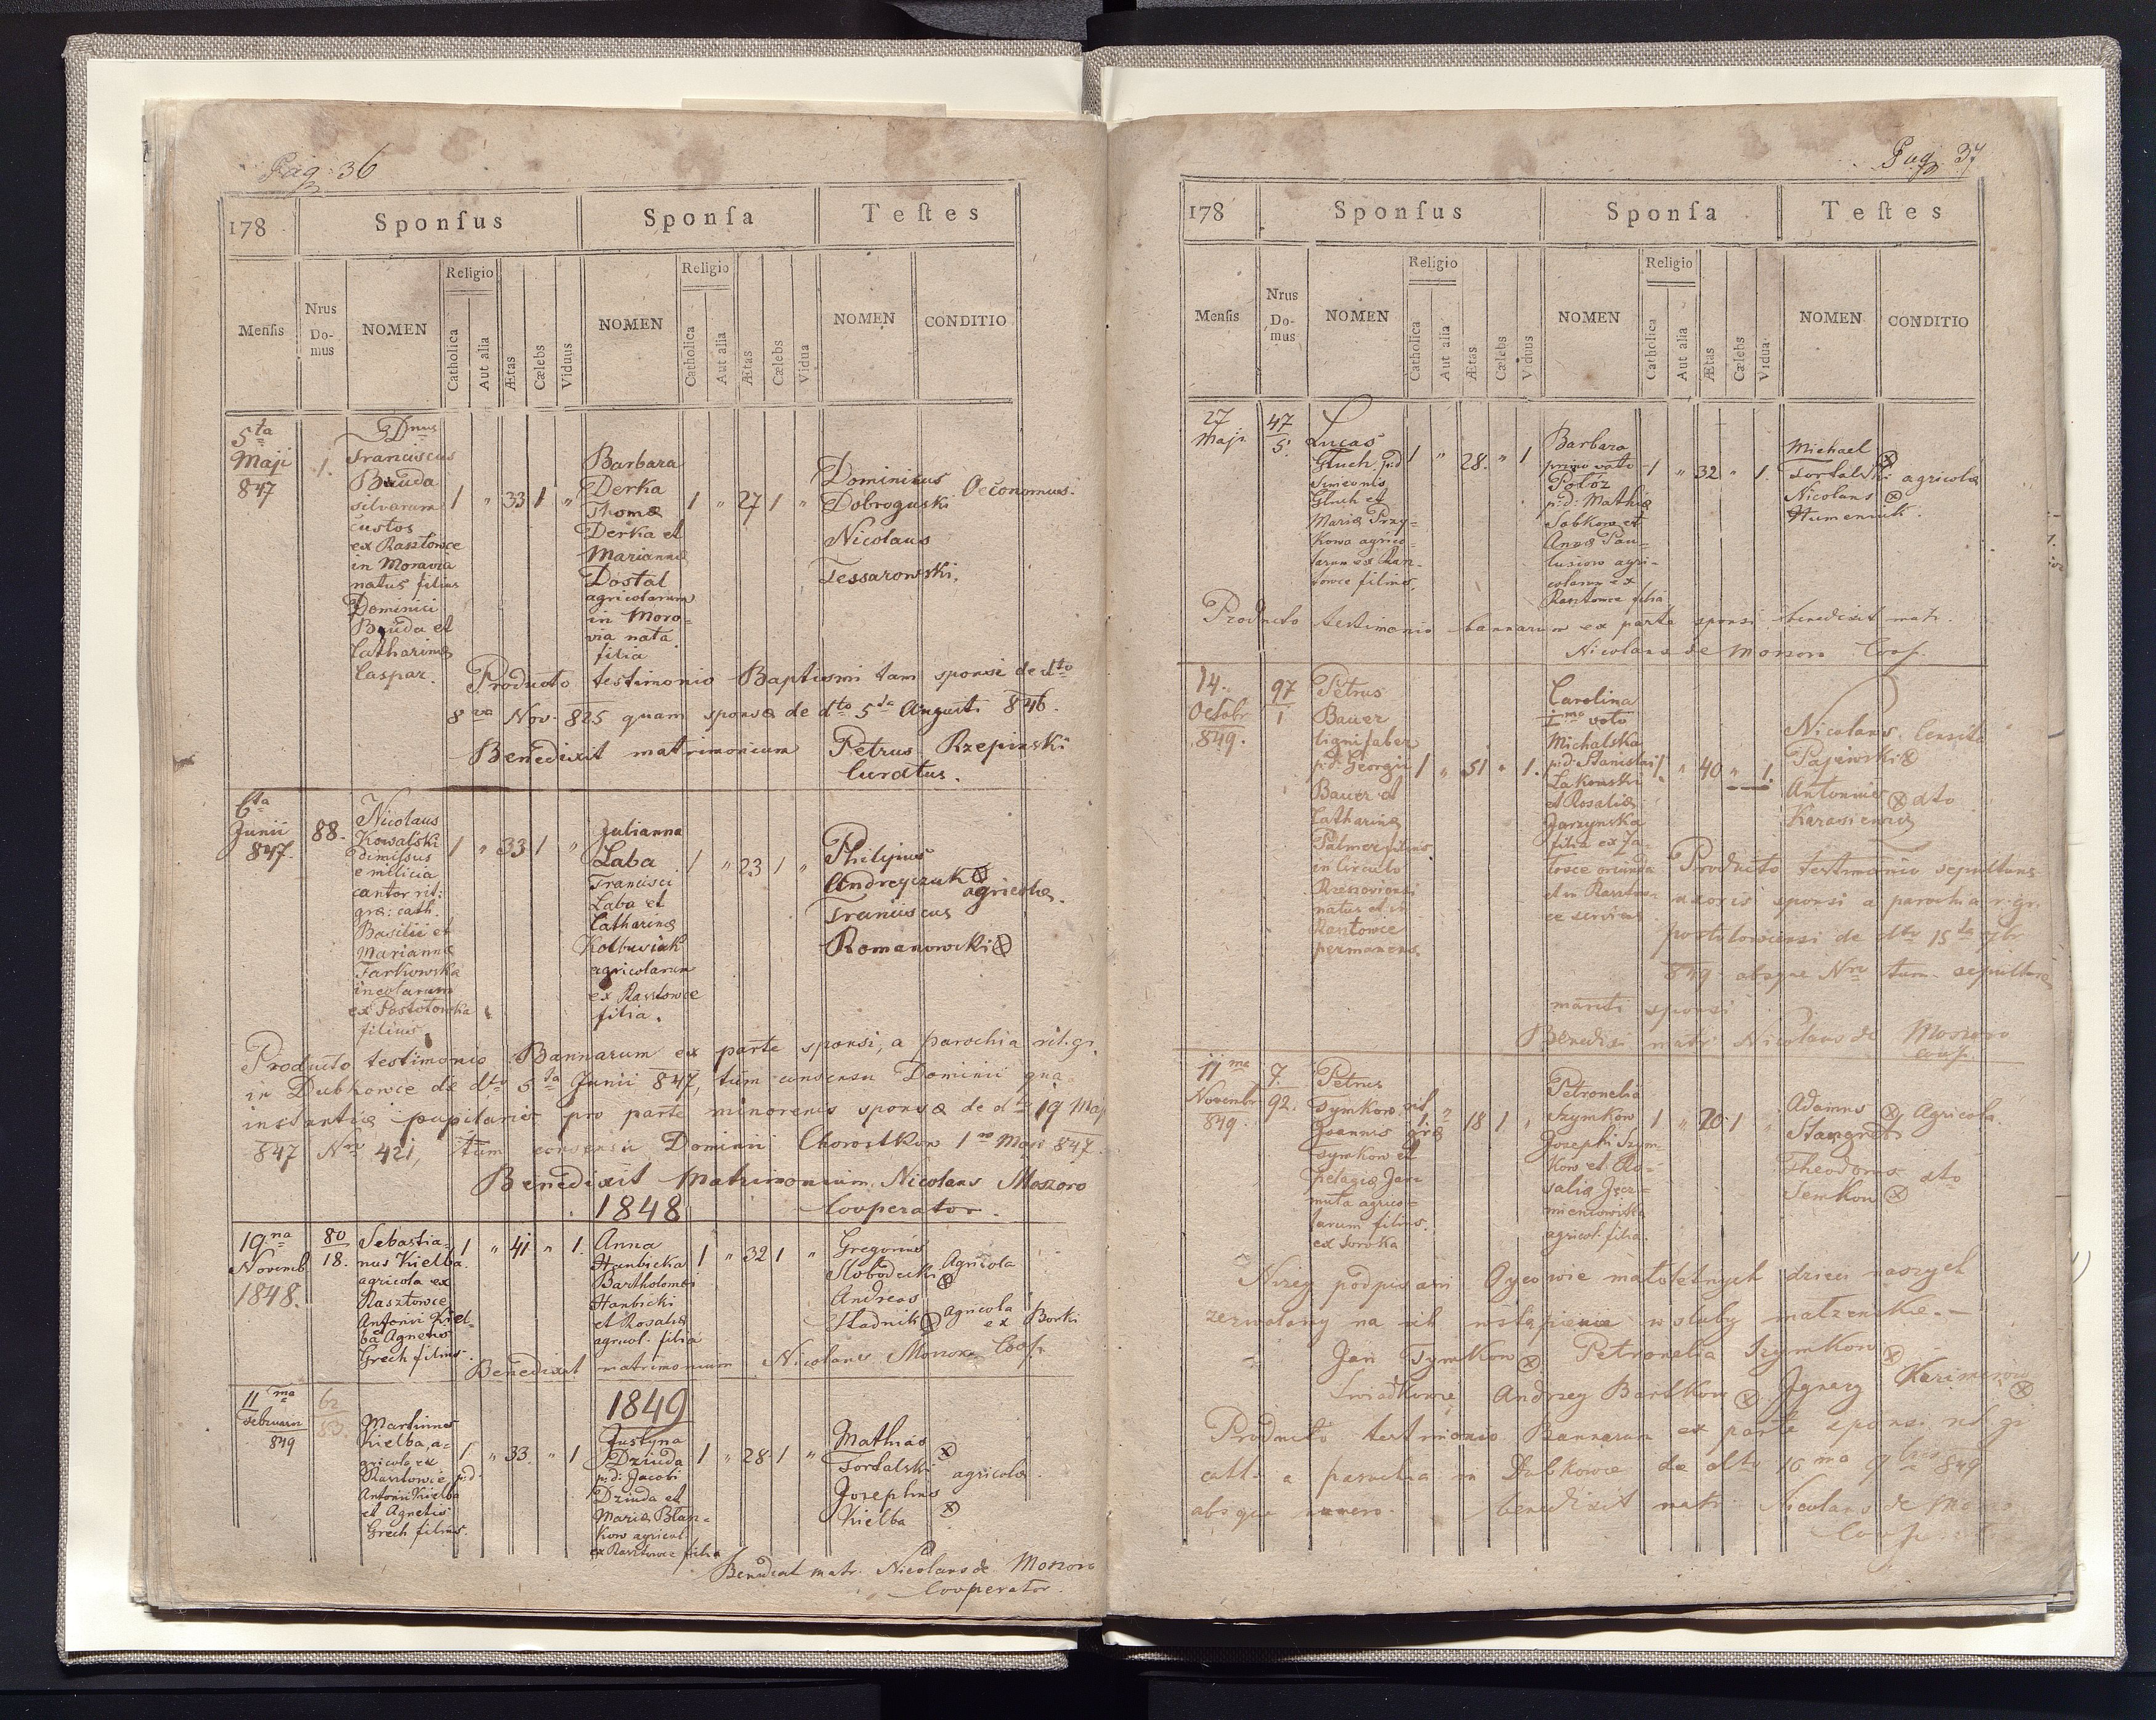 Pag: 36
178
Sponſus
Sponſa
Teſtes
Menſis
Nrus Do-mus
NOMEN
Religio
Catholica
Aut alia
Ætas
Cælebs
Viduus
NOMEN
Religio
Catholica
Aut alia
Ætas
Cælebs
Vidua
NOMEN
CONDITIO
5ta
Maji
847
1.
Dnus
Franciscus
Bauda
silvarum
custos
ex Rasztowce
in Moravia
natus filius
Dominici
Bauda et
Catharina
Caspar.
1 " 33 1 "
Barbara
Derka
Thomæ
Derka et
Marianna
Dostal
agricolarum
in Moro-
via nata
filia
1 " 27 1 "
Dominicus
Dobroguski Oeconomus.
Nicolaus
Tessarowski.
Producto testimonio Baptismi tam sponsi de dto
8va Nov. 825 quam sponsæ de dto 5ta Augusti 846.
Benedixit matrimonium Petrus Rzepinski
Curatus.
6ta
Junii
847.
88.
Nicolaus
Kowalski
dimissus
e milicia
cantor rit:
græ: cath.
Basilii et
Marianna
Tarkowska
incolarum
ex Postolowka
filius
1 " 33 1 "
Julianna
Laba
Francisci
Laba et
Catharina
Kolbusiak
agricolarum
ex Rasztowce
filia.
1 " 23 1 "
Philippus
Andreyczuk
agricolæ.
Franciscus
Romanowski
Producto testimonio Bannarum ex parte sponsi, a parochia rit. gr.
in Dubkowce de dto 5ta Junii 847, tum consensu Dominii qua
instantia pupilaris pro parte minorenis sponsæ de dto 19 Maji
847 Nro 421, tum consensu Dominii Chorostkow 1ma Maji 847.
Benedixit Matrimonium Nicolaus Moszoro
Cooperator.
1848
19.na
Novemb
1848.
80
18.
Sebastia-
nus Kielba
agricola ex
Rasztowce
Antonii Kiel-
ba Agnetis
Grech filius.
1 " 41 " 1.
Anna
Hanbicka
Bartholomei
Hanbicki
et Rosalia
agricol. filia
1 " 32 1 "
Gregorius
Slobodecki Agricola
Andreas
Stadnik agricola ex Borki
Benedixit matrimonium Nicolaus Moszoro Coop.
11ma
Februarii
849
62
83.
1849
Martinus
Kielba, a-
gricola ex
Rasztowce p:d:
Antonii Kielba
et Agnetis
Grech filius.
1. " 33. " 1
Justyna
Dziuda
p:d: Jacobi
Dziuda et
Maria Blasz-
kow agricol.
ex Rasztowce filia
1 " 28 1 "
Mathias
Tortalski
agricolæ.
Josephus
Kielba
Benedixit matr. Nicolaus de Moszoro
Cooperator.
Pag. 37
178
Sponſus
Sponſa
Teſtes
Menſis
Nrus Do-mus
NOMEN
Religio
Catholica
Aut alia
Ætas
Cælebs
Viduus
NOMEN
Religio
Catholica
Aut alia
Ætas
Cælebs
Vidua
NOMEN
CONDITIO
27
Maji
47
5.
Lucas
Gluch p:d
Simeonis
Gluch et
Maria Przy-
kowa agrico-
larum ex Rasz-
towce filius.
1 " 28. " 1
Barbara
primo voto
Poloz
p:d: Mathia
Sobkow et
Anna Pau-
lusiow agri-
colarum ex
Rasztowce filia
1 " 32 " 1.
Michael
Tortalski agricolæ
Nicolaus
Humeniuk.
Producto testimonio bannarum ex parte sponsi benedixit matr.
Nicolaus de Moszoro Coop.
14.
Octobr
849.
97
1
Petrus
Bauer
lignifaber
p:d: Georgii
Bauer et
Catharina
Palmer filius
in Circulo
Rzeszoviensi
natus et in
Rasztowce
permanens.
1 " 51 " 1.
Carolina
Imo voto
Michalska
p:d: Stanislai
Lakomski
et Rosalia
Jarzynska
filia ex
towce oriunda
et in Rasztow-
ce serviens
1. " 40 " 1.
Nicolaus Censita
Pajewski
Antonius dto
Karasiewicz
Producto testimonio sepultura
uxoris sponsi a parochia r. gr.
postolowensi de dto 15ta 7br
849 absque Nro tum sepultura
mariti sponsi
Benedixi matr. Nicolaus de Moszoro
coop.
11me
Novembr
849.
7.
92.
Petrus
Tymkow rit
Joannis græ
Tymkow et
Pelagia Jar-
muta agrico-
larum filius.
ex Soroka
1 " 18 1 "
Petronela
Szymkow
Josephi Szym-
kow et Ro-
salia
agricol. filia.
1 " 20 1 "
Adamus Agricola
Stangret
Theodorus dto
Semkow
Nizey podpisani Oycowie małoletnych dzieci naszych
zezwalamy na ich wstąpienie w sluby malzenskie.—
Jan Tymkow Petronela Szymkow
Swiadkowie Andrzey Bartkow Jgnacy
Producto testimonio Bannarum ex parte sponsi rit. gr
cath. a parochia in Dubkowce de dto 10ma 9bris 849
absque numero. benedixit matr. Nicolaus de Moszoro
Coop